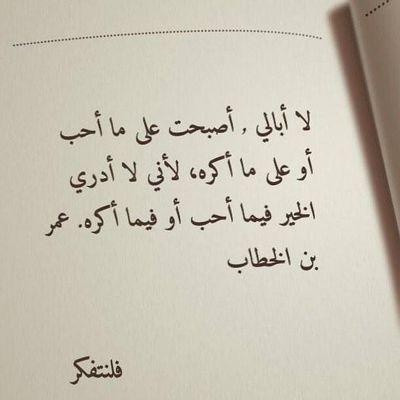 لا أبالي , أصبحت على ما أحب
أو على ما أكره، لأني لا أدري
الخير فيما أحب أو فيما أكره. عمر
بن الخطاب
فلنتفكر